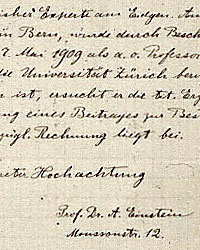 ischer Experte am Eidgen. Am
in Bern, wurde durch Besch
7. Mai 1909 als a.o. Professor
die Universität Zürich beru
en ist, ersucht er die tit. Erz
ung eines Beitrages zur Be
zügl. Rechnung liegt bei.
Hochachtung
Prof. Dr. A. Einstein
Moussonstr. 12.